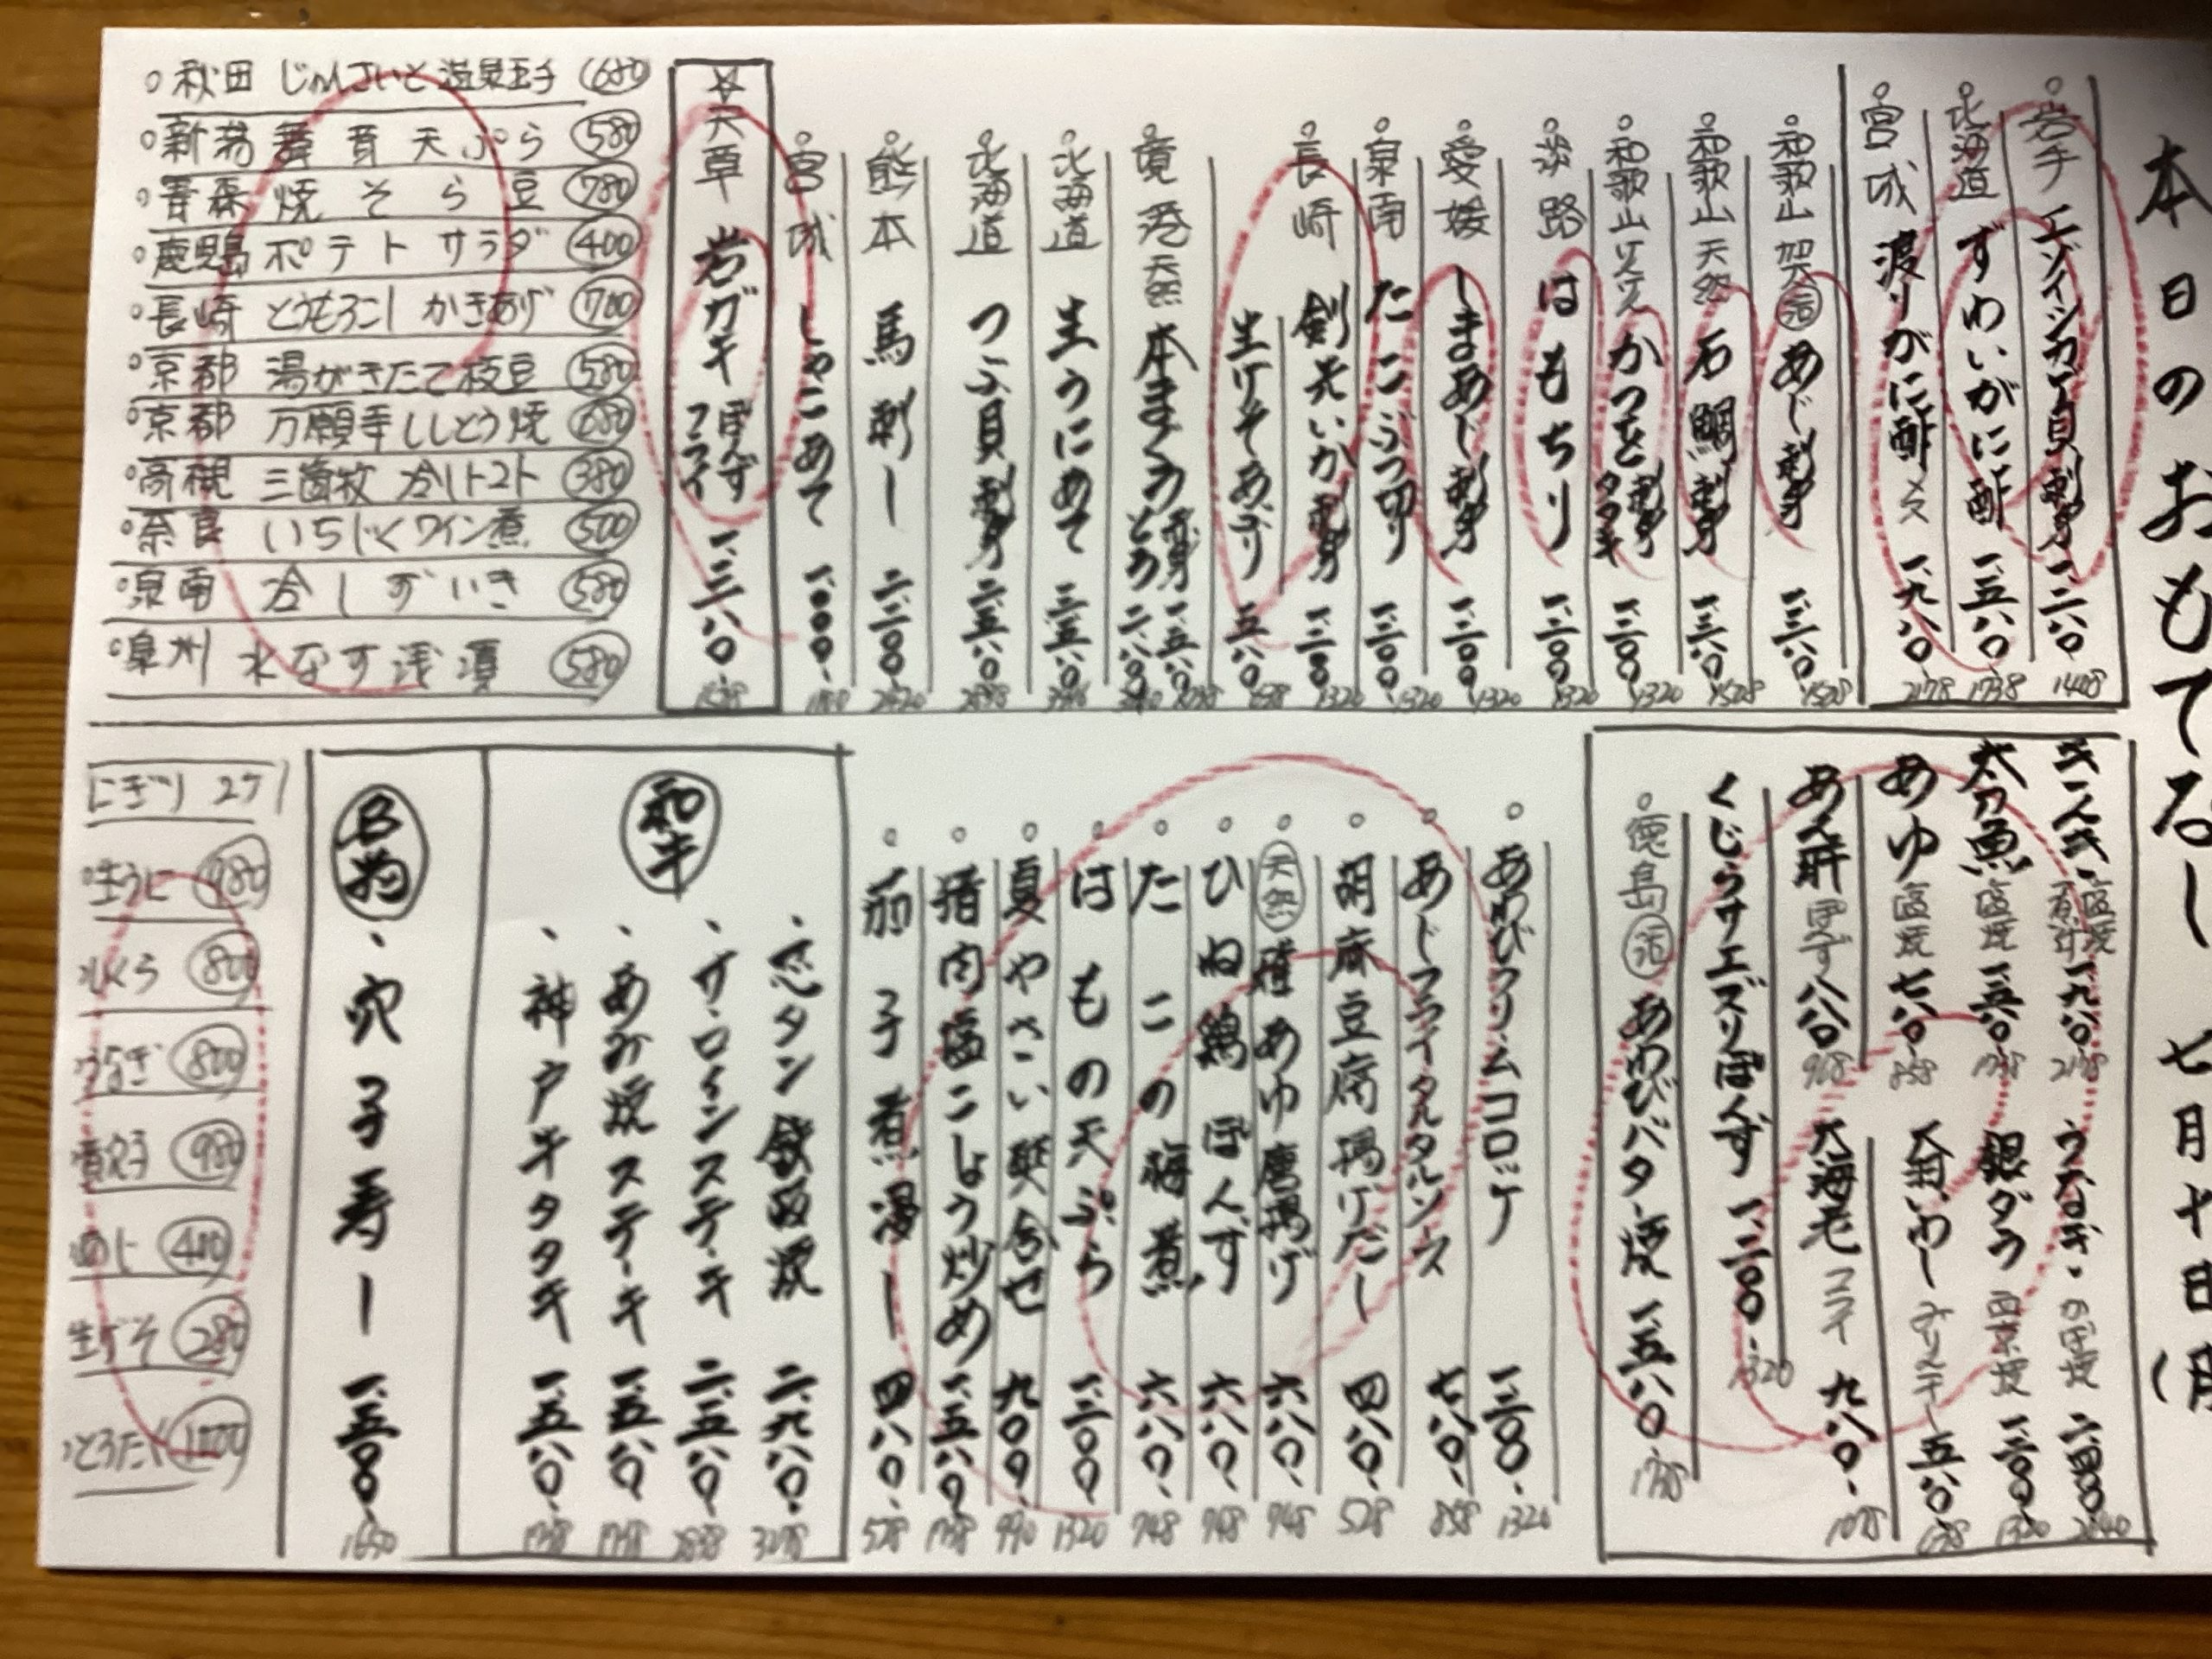 本日のおもてなし 七月十日(月
岩手 エゾイシカゲ貝刺身 一、二八〇、 1408
北海道 ずわいがに酢 一、五八〇、 1738
宮城 渡りがに酢 メス 一、九八〇、 2178
和歌山 加太 活 あじ刺身 一、三八〇 1518
和歌山 天然 石鯛刺身 一、三八〇 1518
かつを 刺身 タタキ 一、二〇〇、 1320
淡路 はもちり 一、二〇〇、 1320
愛媛 しまあじ刺身 一、二〇〇、 1320
泉南 たこぶつ切り 一、二〇〇、 1320
長崎 剣先いか刺身 一、二〇〇 1320
生げそあぶり 五八〇 638
境港 天然 本まぐろ 赤身 一、五八〇 とろ
北海道 生うにあて 三、五八〇
北海道 つぶ貝刺身 二、五八〇
熊本 馬刺し 二、二〇〇、 2420
宮城 しゃこあて 一、〇〇〇、
☆天草 岩ガキ ぽんず フライ 一、三八〇、 1518
秋田 じゅんさいと温泉玉子 680
新潟 舞茸天ぷら 580
青森 焼そら豆 780
鹿児島 ポテトサラダ 400
長崎 とうもろこしかきあげ 700
京都 湯がきたて枝豆 580
京都 万願寺ししとう焼 680
高槻 三箇牧 冷しトマト 380
奈良 いちじくワイン煮 500
泉南 冷しずいき 580
泉州 水なす浅漬 580
塩焼 煮付 一、九八〇、 2178
うなぎ・かば焼 二、四〇〇、 2640
太刀魚 塩焼 一、五八〇、 1738
銀ダラ 西京焼 一、二〇〇、 1320
あゆ 塩焼 七八〇、 858
大羽いわし 五八〇、 638
あん肝 ぽんず 八八〇 968
大海老 フライ 九八〇、 1078
くじらサエズリぽんず 一、二〇〇、 1320
徳島 活 あわびバター焼 一、五八〇、 1738
あわびクリームコロッケ 一、二〇〇、 1320
あじフライタルタルソース 七八〇、 858
胡麻豆腐揚げだし 四八〇、 528
天然 稚あゆ唐揚げ 六八〇、 748
ひね鶏ぽんず 六八〇、 748
たこの梅煮 六八〇、 748
はもの天ぷら 一、二〇〇 1320
夏やさい炊合せ 九〇〇、 990
猪肉塩こしょう炒め 一、五八〇、 1738
茄子煮浸し 四八〇、 528
和牛
芯タン鉄板焼 二、九八〇、 3278
サーロインステーキ 二、五八〇、 2838
あみ焼ステーキ 一、五八〇、 1738
神戸牛タタキ 一、五八〇、 1738
名物
穴子寿し 一、五〇〇、 1650
にぎり 2ケ
生うに 980
いくら 800
うなぎ 800
煮穴子 980
あじ 400
生げそ 280
とろたく